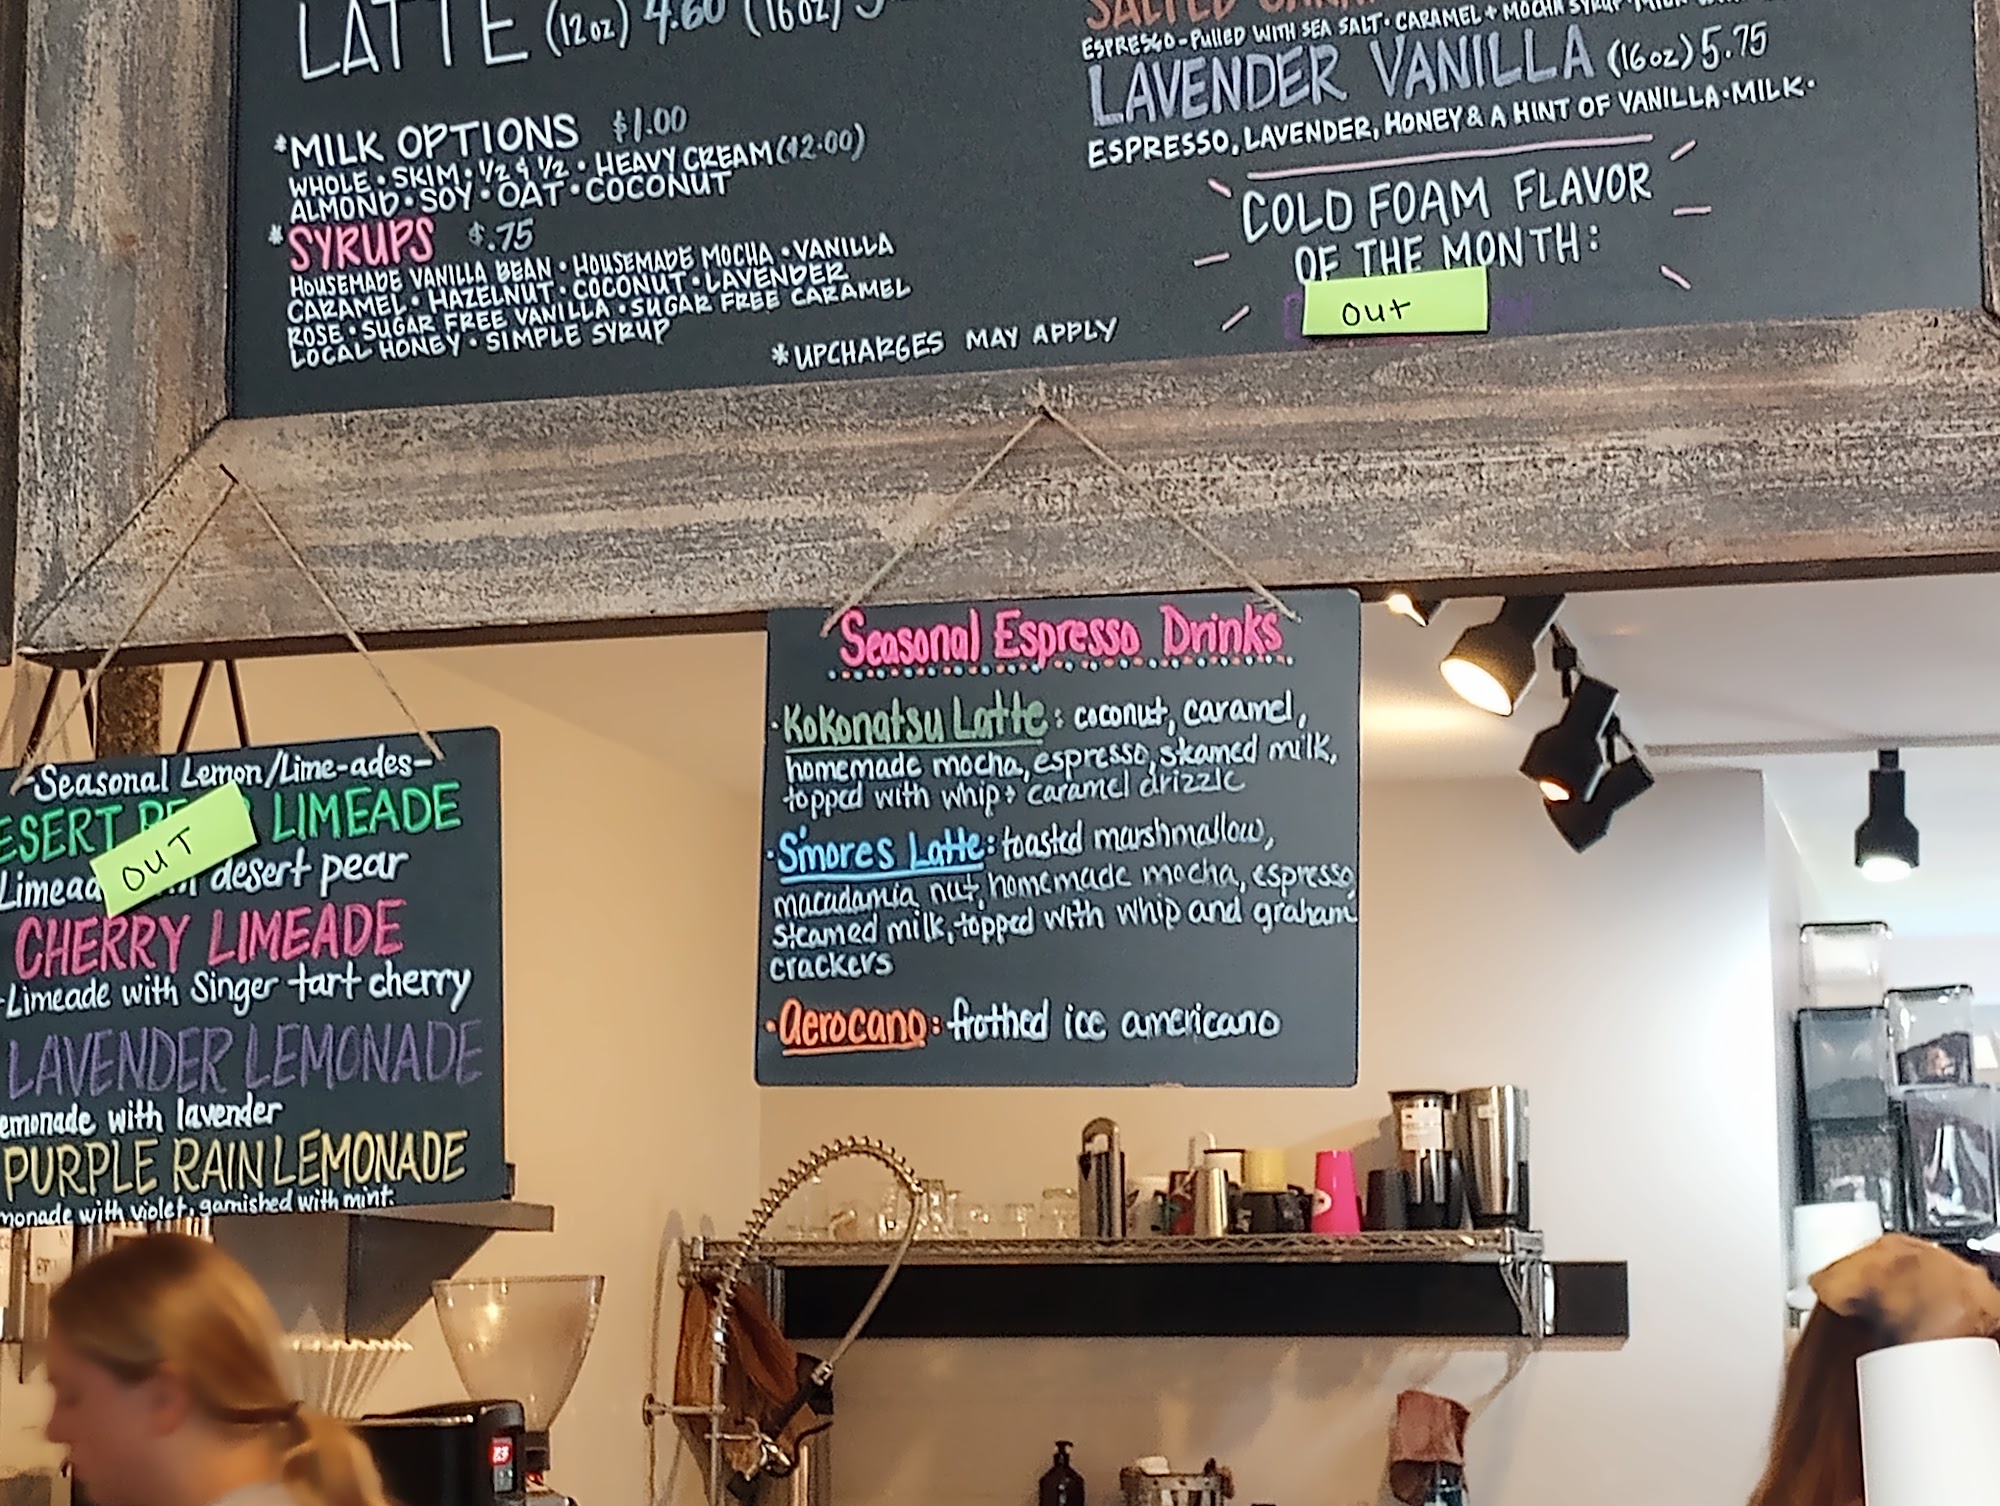 LATTE (12oz) 4.60 (16oz)
*MILK OPTIONS $1.00
WHOLE • SKIM • ½ & ½ • HEAVY CREAM ($2.00)
ALMOND • SOY • OAT • COCONUT
*SYRUPS $.75
HOUSEMADE VANILLA BEAN • HOUSEMADE MOCHA • VANILLA
CARAMEL • HAZELNUT • COCONUT • LAVENDER
ROSE • SUGAR FREE VANILLA • SUGAR FREE CARAMEL
LOCAL HONEY • SIMPLE SYRUP
*UPCHARGES MAY APPLY
SALTED
ESPRESSO-Pulled WITH SEA SALT • CARAMEL + MOCHA SYRUP
LAVENDER VANILLA (16oz) 5.75
ESPRESSO, LAVENDER, HONEY & A HINT OF VANILLA • MILK •
COLD FOAM FLAVOR
OF THE MONTH:
out
-Seasonal Lemon/Lime-ades-
LIMEADE
OUT
desert pear
CHERRY LIMEADE
-Limeade with Singer tart cherry
LAVENDER LEMONADE
with lavender
PURPLE RAIN LEMONADE
with violet, garnished with mint.
Seasonal Espresso Drinks
• Kokonatsu Latte: coconut, caramel,
homemade mocha, espresso, steamed milk,
topped with whip + caramel drizzle
• S'mores Latte: toasted marshmallow,
macadamia nut, homemade mocha, espresso,
steamed milk, topped with whip and graham
crackers
• aerocano: frothed ice americano